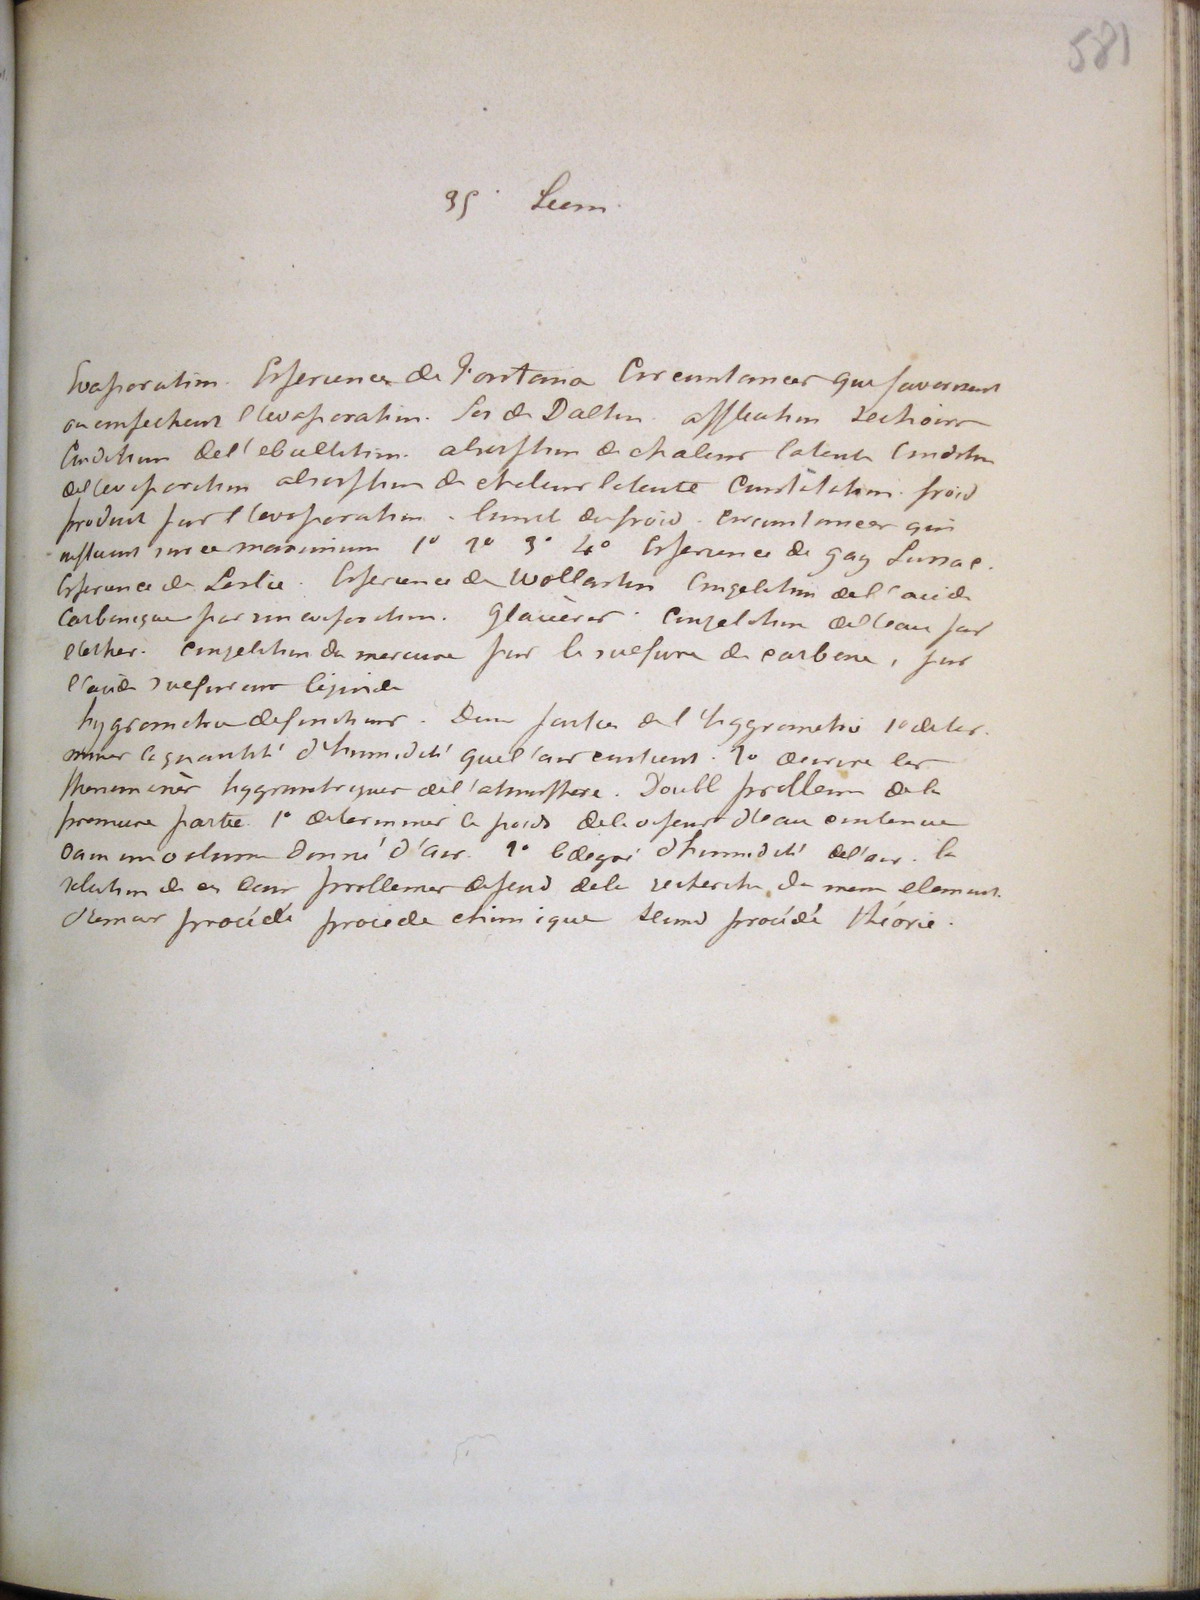 581
35. Leçon.
Evaporation. Experience de Fontana Circonstances qui favorisent
ou empechent l'evaporation. Loi de Dalton. application sechoirs
Condition de l'ebullition. absorption de chaleur latente Condition
de l'evaporation absorption de chaleur latente Constatation. froid
produit par l'evaporation. limite du froid. circonstances qui
influent sur ce maximum 1° 2° 3° 4° Experience de gay Lussac.
Experience de Leslie. Experience de Wollaston Congelation de l'acide
Carbonique par son evaporation. Glacières. Congelation de l'eau par
l'ether. Congelation du mercure par le sulfure de carbone, par
l'acide sulfureux liquide
hygrometrie definitions. Deux parties de l'hygrometrie 1° deter.
miner la quantité d'humidité que l'air contient. 2° decrire les
Phenomènes hygrometriques de l'atmosphere. Double probleme de la
premiere partie. 1° determiner le poids de la vapeur d'eau contenue
dans un volume donné d'air. 2° le degré d'humidité de l'air. la
solution de ces deux problemes depend de la recherche du meme element.
Premier procédé procede chimique second procédé théorie.